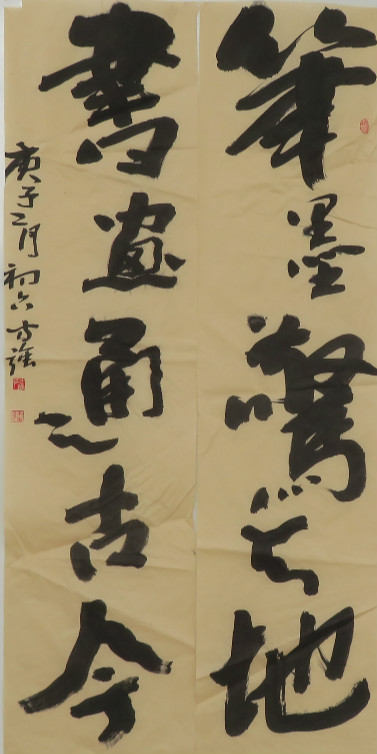 筆墨驚天地
書畫通古今
庚子二月初六